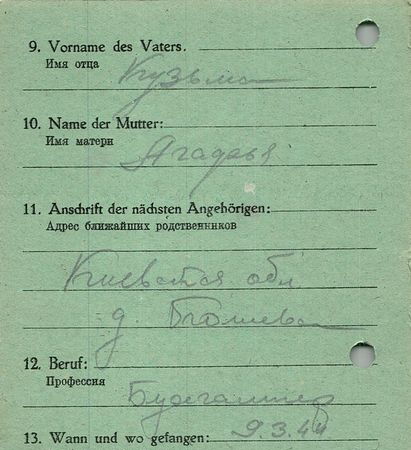 9. Vorname des Vaters.
Имя отца
Кузьма
10. Name der Mutter:
Имя матери
11. Anschrift der nächsten Angehörigen:
Адрес ближайших родственников
Киевская обл
д.
12. Beruf:
Профессия
Бухгалтер
13. Wann und wo gefangen: 9.3.44